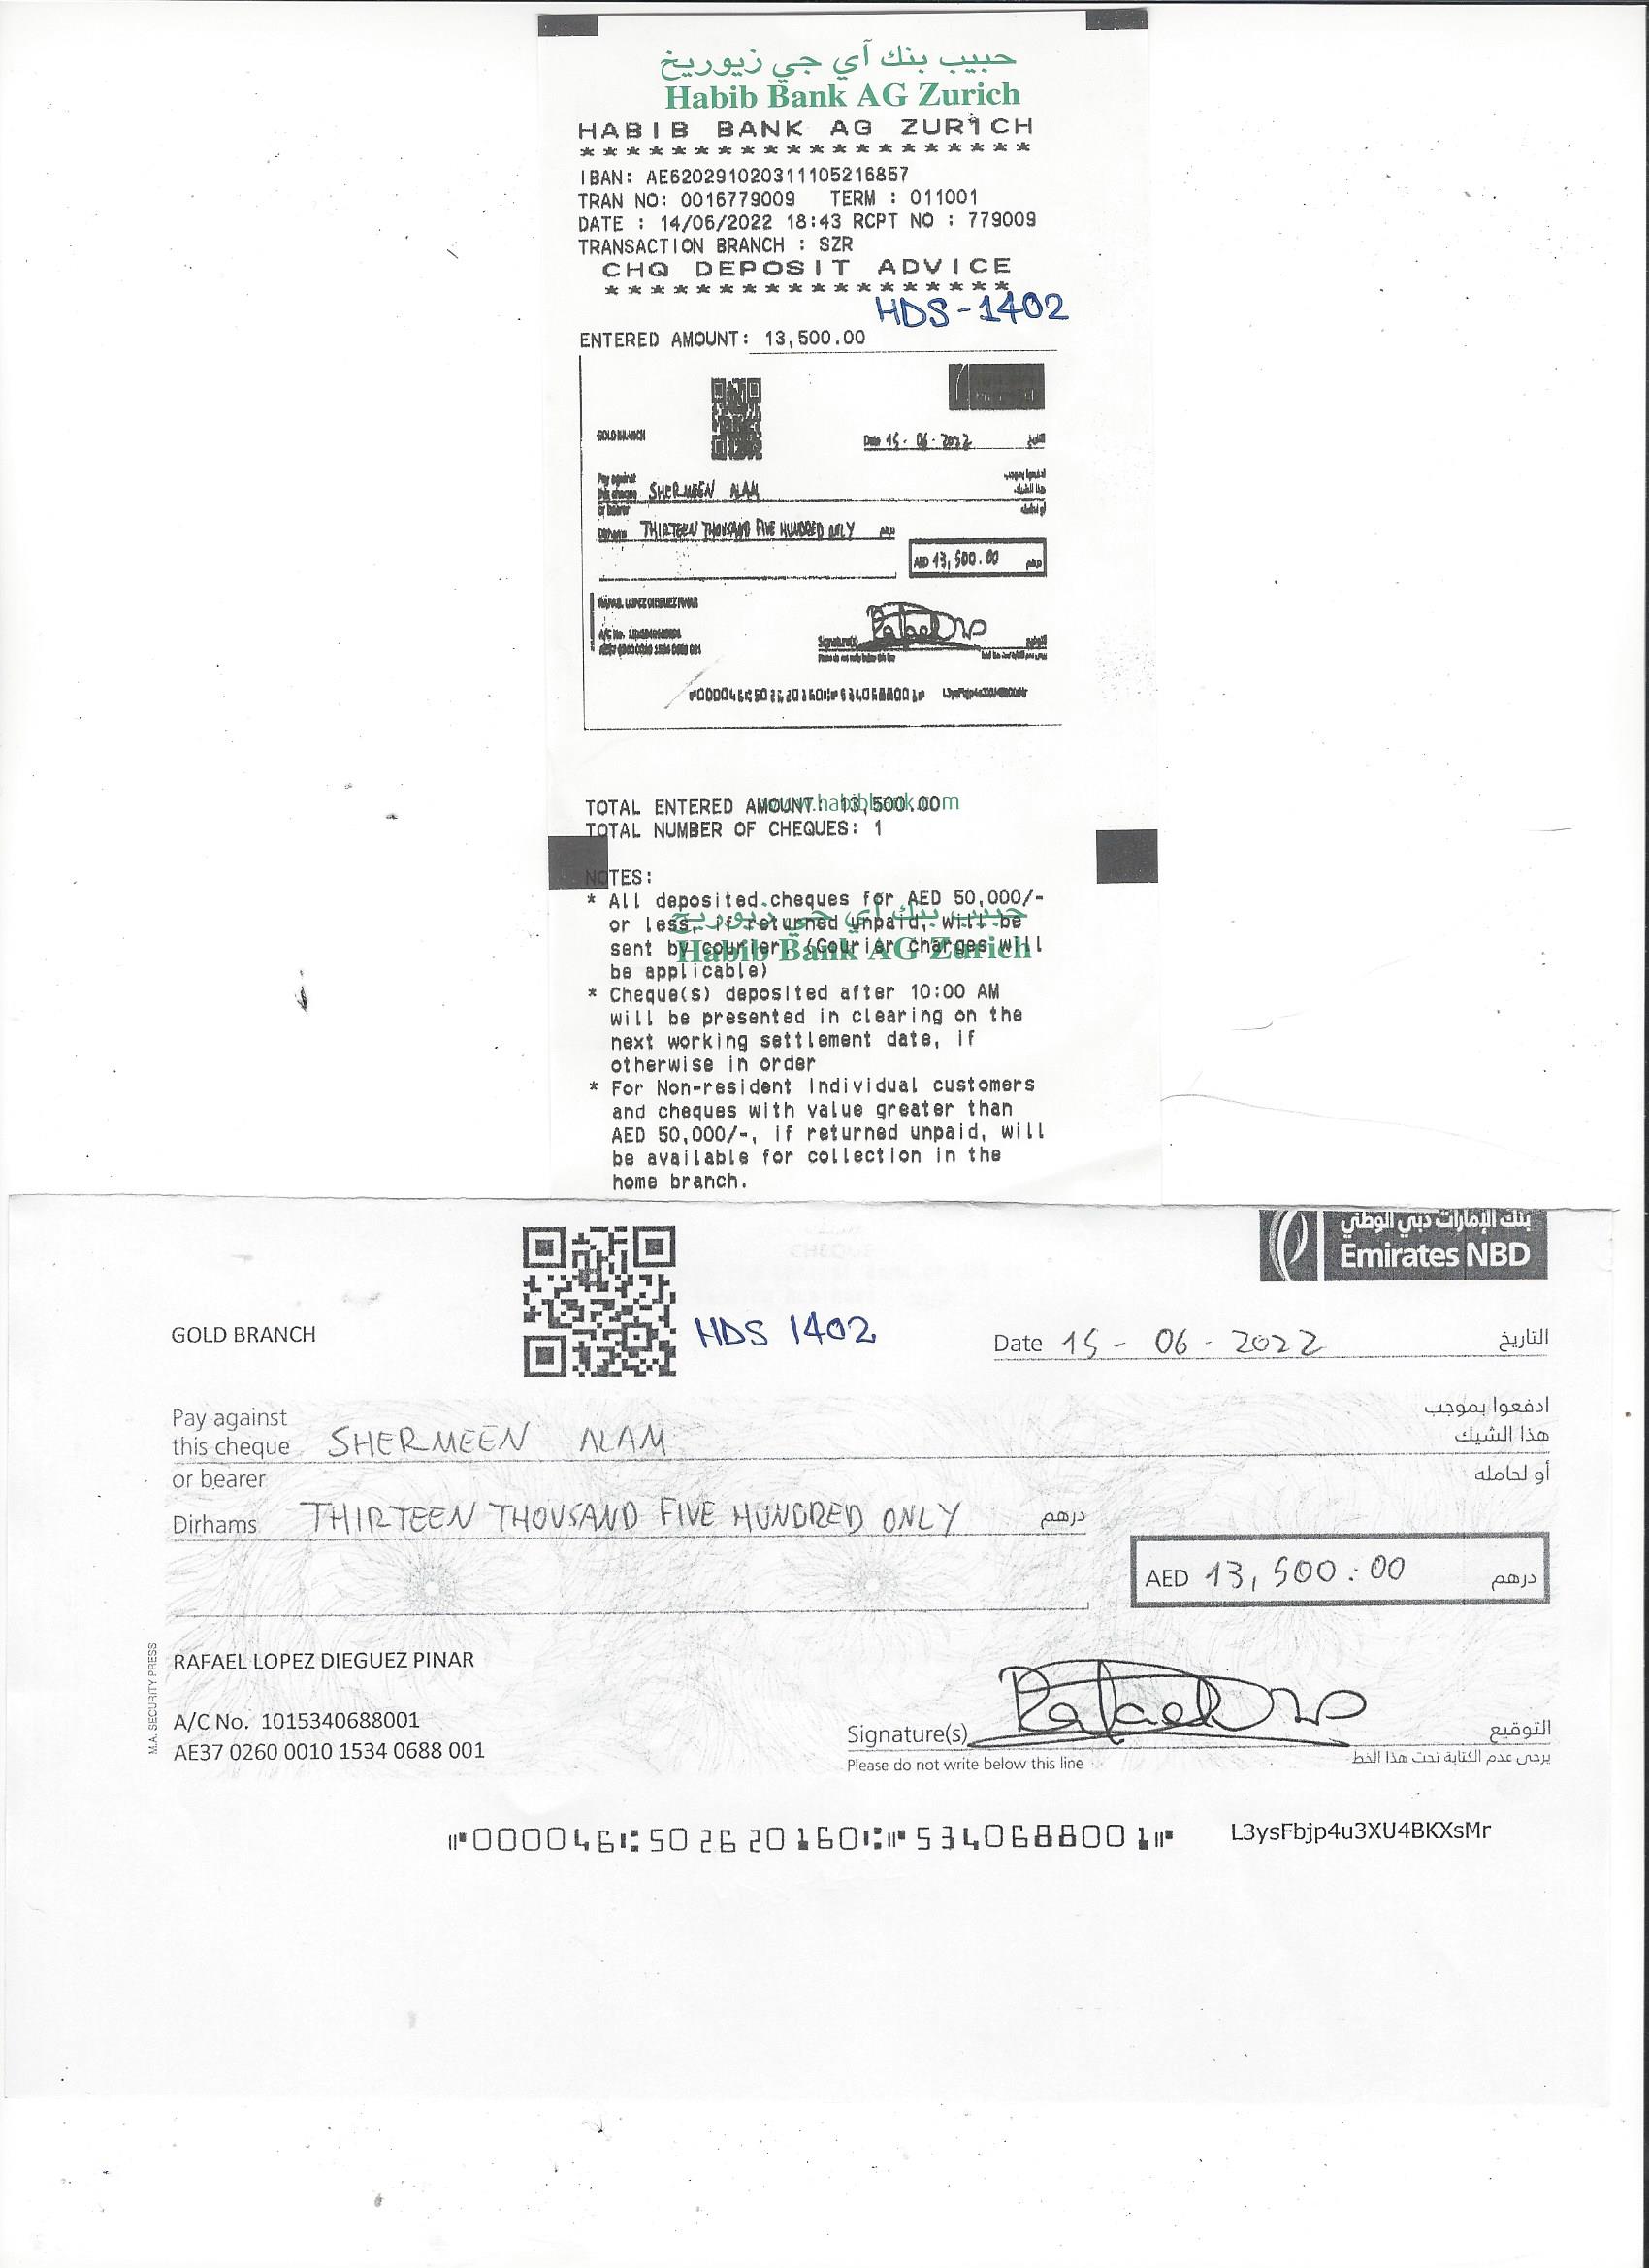 حبيب بنك آي جي زيوريخ
Habib Bank AG Zurich
HABIB BANK AG ZURICH
********************
IBAN: AE620291020311105216857
TRAN NO: 0016779009 TERM : 011001
DATE : 14/06/2022 18:43 RCPT NO : 779009
TRANSACTION BRANCH : SZR
CHQ DEPOSIT ADVICE
******************
HDS-1402
ENTERED AMOUNT: 13,500.00
GOLD BRANCH
Date 15-06-2022 التاريخ
Pay against
this cheque SHERMEEN ALAM
or bearer
Dirhams THIRTEEN THOUSAND FIVE HUNDRED ONLY درهم
AED 13,500.00 درهم
Signature(s)
TOTAL ENTERED AMOUNT: 13,500.00
www.habibbank.com
TOTAL NUMBER OF CHEQUES: 1
NOTES:
* All deposited cheques for AED 50,000/-
or less, if returned unpaid, will be
حبيب بنك آي جي زيوريخ
sent by courier. (Courier charges will
Habib Bank AG Zurich
be applicable)
* Cheque(s) deposited after 10:00 AM
will be presented in clearing on the
next working settlement date, if
otherwise in order
* For Non-resident Individual customers
and cheques with value greater than
AED 50,000/-, if returned unpaid, will
be available for collection in the
home branch.
بنك الإمارات دبي الوطني
Emirates NBD
GOLD BRANCH
HDS 1402
Date 15-06-2022 التاريخ
Pay against ادفعوا بموجب
this cheque SHERMEEN ALAM هذا الشيك
or bearer أو لحامله
Dirhams THIRTEEN THOUSAND FIVE HUNDRED ONLY درهم
AED 13,500:00 درهم
M.A. SECURITY PRESS
RAFAEL LOPEZ DIEGUEZ PINAR
A/C No. 1015340688001
AE37 0260 0010 1534 0688 001
Rafael
Signature(s) التوقيع
Please do not write below this line يرجى عدم الكتابة تحت هذا الخط
⑈000046⑆502620160⑆⑈5340688001⑈ L3ysFbjp4u3XU4BKXsMr